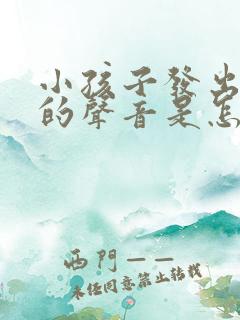 小孩子發出
的聲音是怎
西門——
未經同意禁止轉載